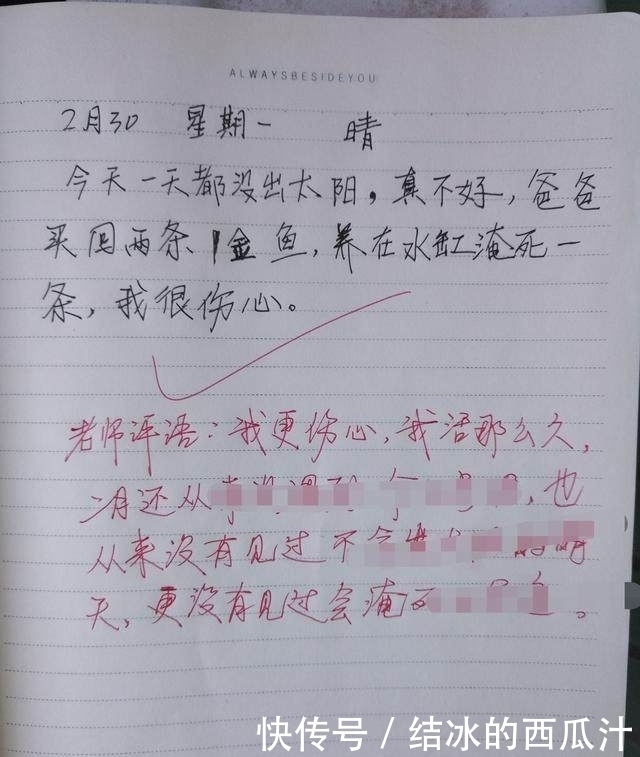 ALWAYSBESIDEYOU
2月30 星期一 晴
今天一天都没出太阳，真不好，爸爸
买回两条金鱼，养在水缸淹死一
条，我很伤心。
老师评语：我更伤心，我活那么久，
二月还从，也
从来没有见过不
天，更没有见过会淹。
快传号 / 结冰的西瓜汁